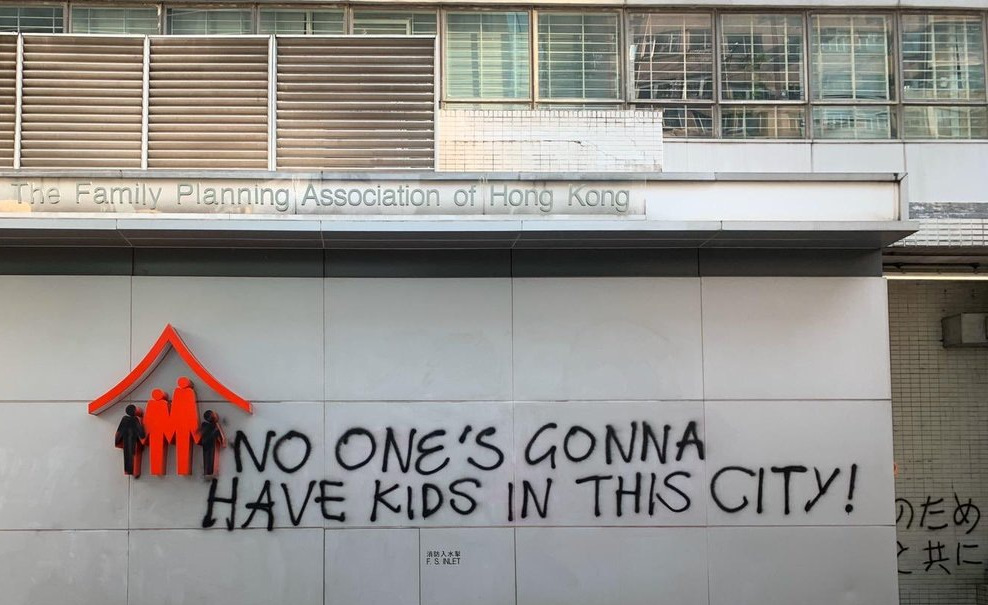 The Family Planning Association of Hong Kong
NO ONE'S GONNA
HAVE KIDS IN THIS CITY!
消防入水掣
F. S. INLET
のため
と共に